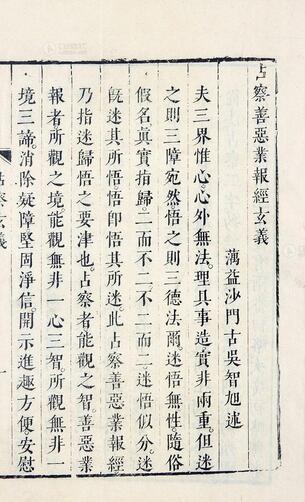 占察善惡業報經玄義
蕅益沙門古吳智旭述
夫三界惟心。心外無法。理具事造。實非兩重。但迷
之則三障宛然。悟之則三德法爾。迷悟無性。隨俗
假名。真實指歸。二而不二。不二而二。迷悟似分。迷
既迷其所悟。悟即悟其所迷。此占察善惡業報經。
乃指迷歸悟之要津也。占察者。能觀之智。善惡業
報者。所觀之境。能觀無非一心三智。所觀無非一
境三諦。消除疑障。堅固淨信。開示進趣方便。安慰
占察玄義
一